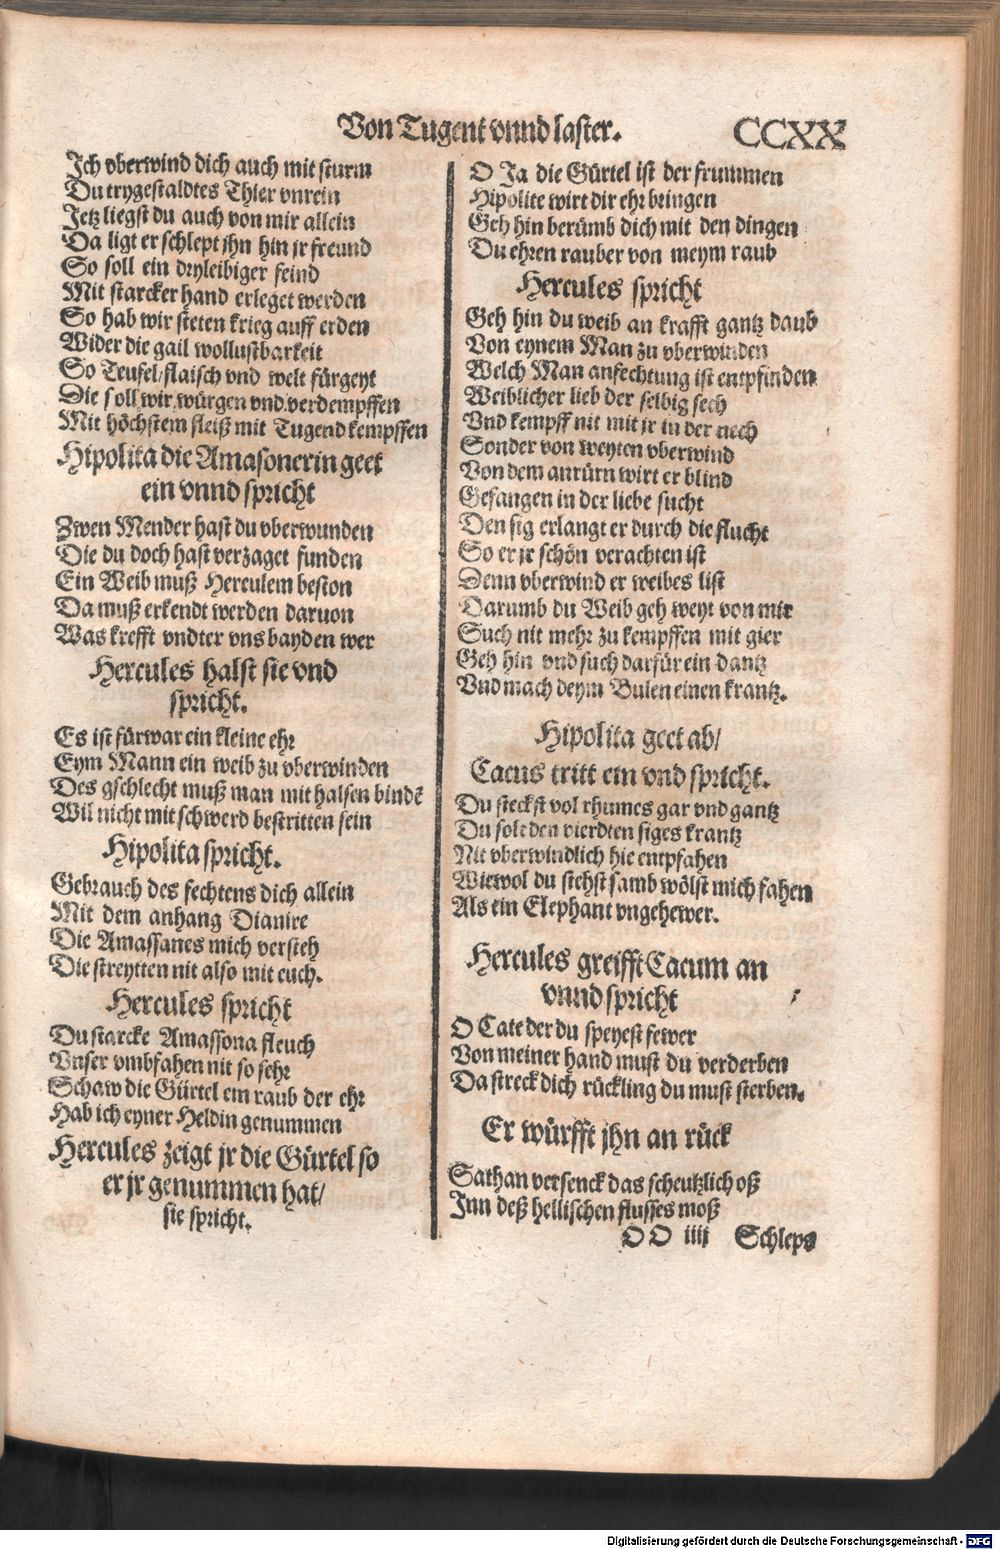 Von Tugent vnnd laster. CCXX
Ich vberwind dich auch mit sturm
Du trygestaldtes Thier vnrein
Jetz liegst du auch von mir allein
Da ligt er schlept jhn hin jr freund
So soll ein dryleibiger feind
Mit starcker hand erleget werden
So hab wir steten krieg auff erden
Wider die gail wollustbarkeit
So Teufel/flaisch vnd welt fürgeyt
Die soll wir würgen vnd verdempffen
Mit höchstem fleiß mit Tugend kempffen
Hipolita die Amasonerin geet
ein vnnd spricht
Zwen Mender hast du vberwunden
Die du doch hast verzaget funden
Ein Weib muß Herculem beston
Da muß erkendt werden daruon
Was krefft vndter vns bayden wer
Hercules halst sie vnd
spricht.
Es ist fürwar ein kleine ehr
Eym Mann ein weib zu vberwinden
Des gschlecht muß man mit halsen bindē
Wil nicht mit schwerd bestritten sein
Hipolita spricht.
Gebrauch des fechtens dich allein
Mit dem anhang Dianire
Die Amassanes mich versteh
Die streytten nit also mit euch.
Hercules spricht
Du starcke Amassona fleuch
Vnser vmbfahen nit so sehr
Schaw die Gürtel ein raub der ehr
Hab ich eyner Heldin genummen
Hercules zeigt jr die Gürtel so
er jr genummen hat/
sie spricht.
O Ja die Gürtel ist der frummen
Hipolite wirt dir ehr bringen
Geh hin berümb dich mit den dingen
Du ehren rauber von meym raub
Hercules spricht
Geh hin du weib an krafft gantz daub
Von eynem Man zu vberwinden
Welch Man anfechtung ist entpfinden
Weiblicher lieb der selbig sech
Vnd kempff nit mit jr in der nech
Sonder von weyten vberwind
Von dem anrürn wirt er blind
Gefangen in der liebe sucht
Den sig erlangt er durch die flucht
So er jr schön verachten ist
Denn vberwind er weibes list
Darumb du Weib geh weyt von mir
Such nit mehr zu kempffen mit gier
Geh hin vnd such darfür ein dantz
Vnd mach deym Bulen einen krantz.
Hipolita geet ab/
Cacus tritt ein vnd spricht.
Du steckst vol rhumes gar vnd gantz
Du solt den vierdten siges krantz
Nit vberwindlich hie entpfahen
Wiewol du stehst samb wölst mich fahen
Als ein Elephant vngehewer.
Hercules greifft Cacum an
vnnd spricht
O Cate der du speyest fewer
Von meiner hand must du verderben
Da streck dich rückling du must sterben.
Er würfft jhn an rück
Sathan versenck das scheutzlich oß
Inn deß hellischen flusses moß
OO iiij Schleps
Digitalisierung gefördert durch die Deutsche Forschungsgemeinschaft - DFG